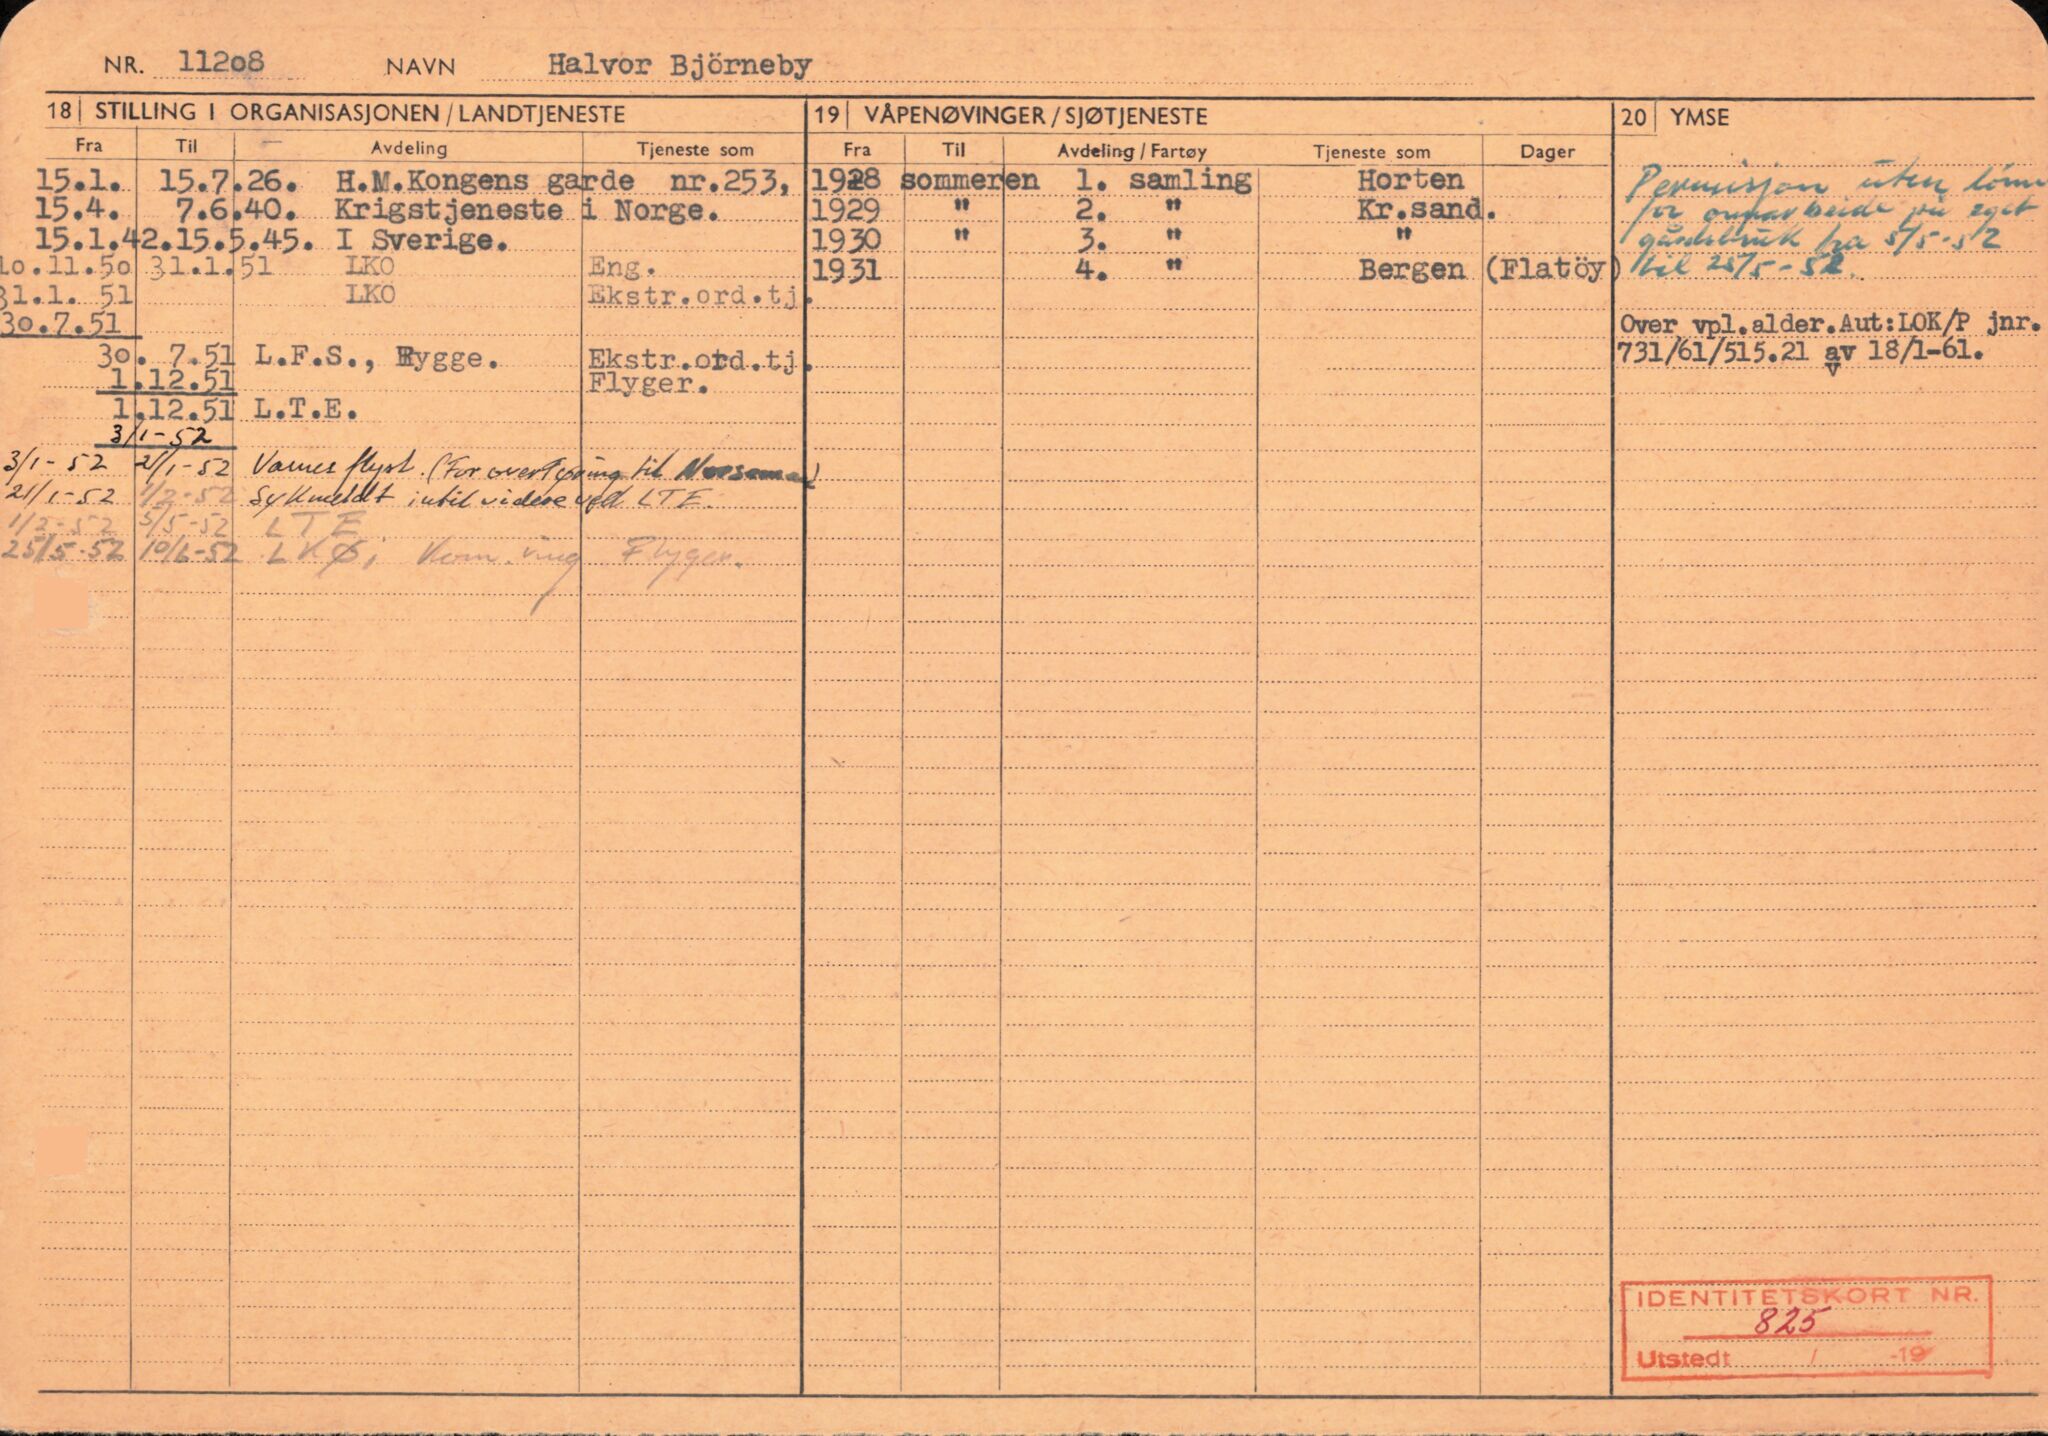 NR. 11208 NAVN Halvor Björneby
18 STILLING I ORGANISASJONEN/LANDTJENESTE
Fra Til Avdeling Tjeneste som
15.1. 15.7.26. H.M.Kongens garde nr.253,
15.4. 7.6.40. Krigstjeneste i Norge.
15.1.42.15.5.45. I Sverige.
10.11.50 31.1.51 LKÖ Eng.
31.1. 51 LKÖ Ekstr.ord.tj.
30.7.51
30. 7.51 L.F.S., Rygge. Ekstr.ord.tj.
1.12.51 Flyger.
1.12.51 L.T.E.
3/1-52
3/1-52 21/1-52 Værnes flyst. (For overføring til Norseman)
21/1-52 1/2-52 Sykmeldt intil videre ved LTE.
1/2-52 5/5-52 LTE
25/5-52 10/6-52 LKØ, Kom.ving Flyger.
19 VÅPENØVINGER/SJØTJENESTE
Fra Til Avdeling/Fartøy Tjeneste som Dager
1928 sommeren 1. samling Horten
1929 " 2. " Kr.sand.
1930 " 3. " "
1931 4. " Bergen (Flatöy)
20 YMSE
Permisjon uten lønn
for onnarbeide på eget
gårdsbruk fra 5/5-52
til 25/5-52.
Over vpl.alder.Aut:LOK/P jnr.
731/61/515.21 av 18/1-61.
IDENTITETSKORT NR.
825
Utstedt / -19